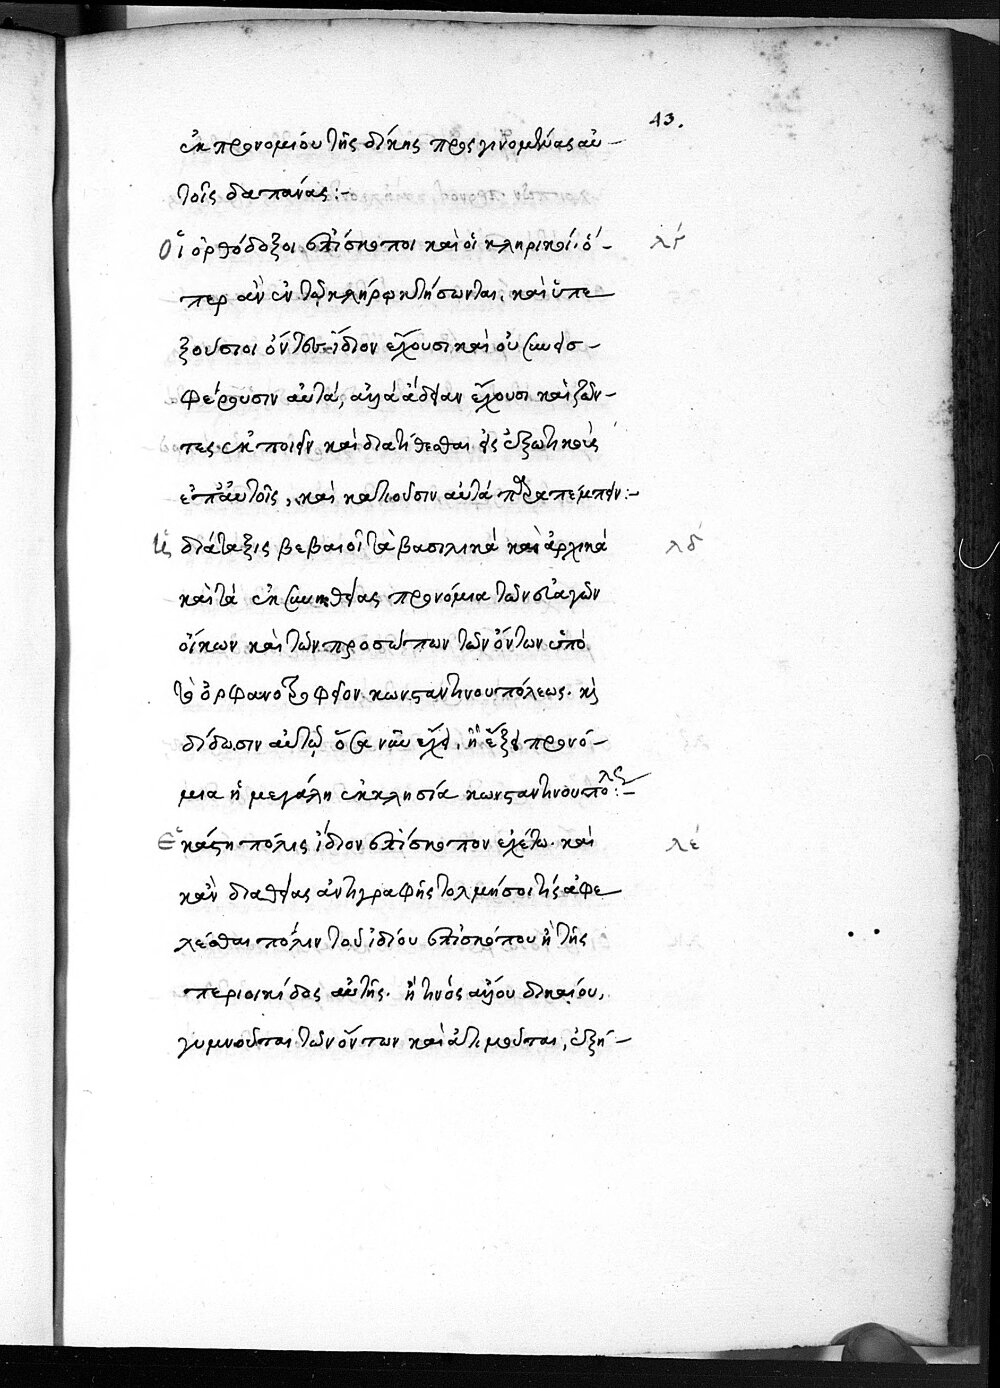 43.
ἐκ προνομίου τῆς δίκης προσγινομένας αὐ-
τοῖς δαπάνας:-
Οἱ ὀρθόδοξοι ἐπίσκοποι καὶ οἱ κληρικοί. ὅ- λγ
περ ἂν ἐν τῷ κλήρῳ κτήσωνται, καὶ ὑπε
ξούσιοι ὄντες ἴδιον ἔχουσι καὶ οὐ συνεισ-
φέρουσιν αὐτά, ἀλλὰ ἄδειαν ἔχουσι καὶ ζῶν-
τες ἐκποιεῖν καὶ διατίθεσθαι εἰς ἐξωτικοὺς
ἐπ' αὐτοῖς, καὶ κατιοῦσιν αὐτὰ παραπέμπειν:-
Ἡ διάταξις βεβαιοῖ τὰ βασιλικὰ καὶ ἀρχικὰ λδ
καὶ τὰ ἐκ συνηθείας προνόμια τῶν εὐαγῶν
οἴκων καὶ τῶν προσώπων τῶν ὄντων ὑπὸ
τὸ ὀρφανοτροφεῖον κωνσταντινουπόλεως. καὶ
δίδωσιν αὐτῷ ὅσα νῦν ἔχει, ἢ ἕξει προνό-
μια ἡ μεγάλη ἐκκλησία κωνσταντινουπόλεως:-
Ἑκάστη πόλις ἴδιον ἐπίσκοπον ἐχέτω. καὶ λέ
κἂν διὰ θείας ἀντιγραφῆς τολμήσοι τίς ἀφε
λέσθαι πόλιν τοῦ ἰδίου ἐπισκόπου ἢ τῆς
περιοικίδος αὐτῆς. ἤ τινός ἄλλου δικαίου,
γυμνοῦται τῶν ὄντων καὶ ἀτιμοῦται, ἐξῄ-